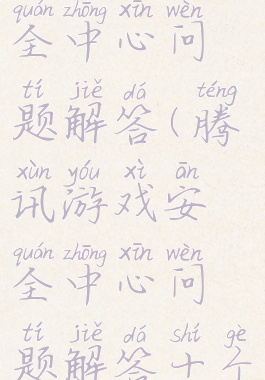 quán zhōng xīn wèn
全中心问
tí jiě dá téng
题解答(腾
xùn yóu xì ān
讯游戏安
quán zhōng xīn wèn
全中心问
tí jiě dá shí gè
题解答十个